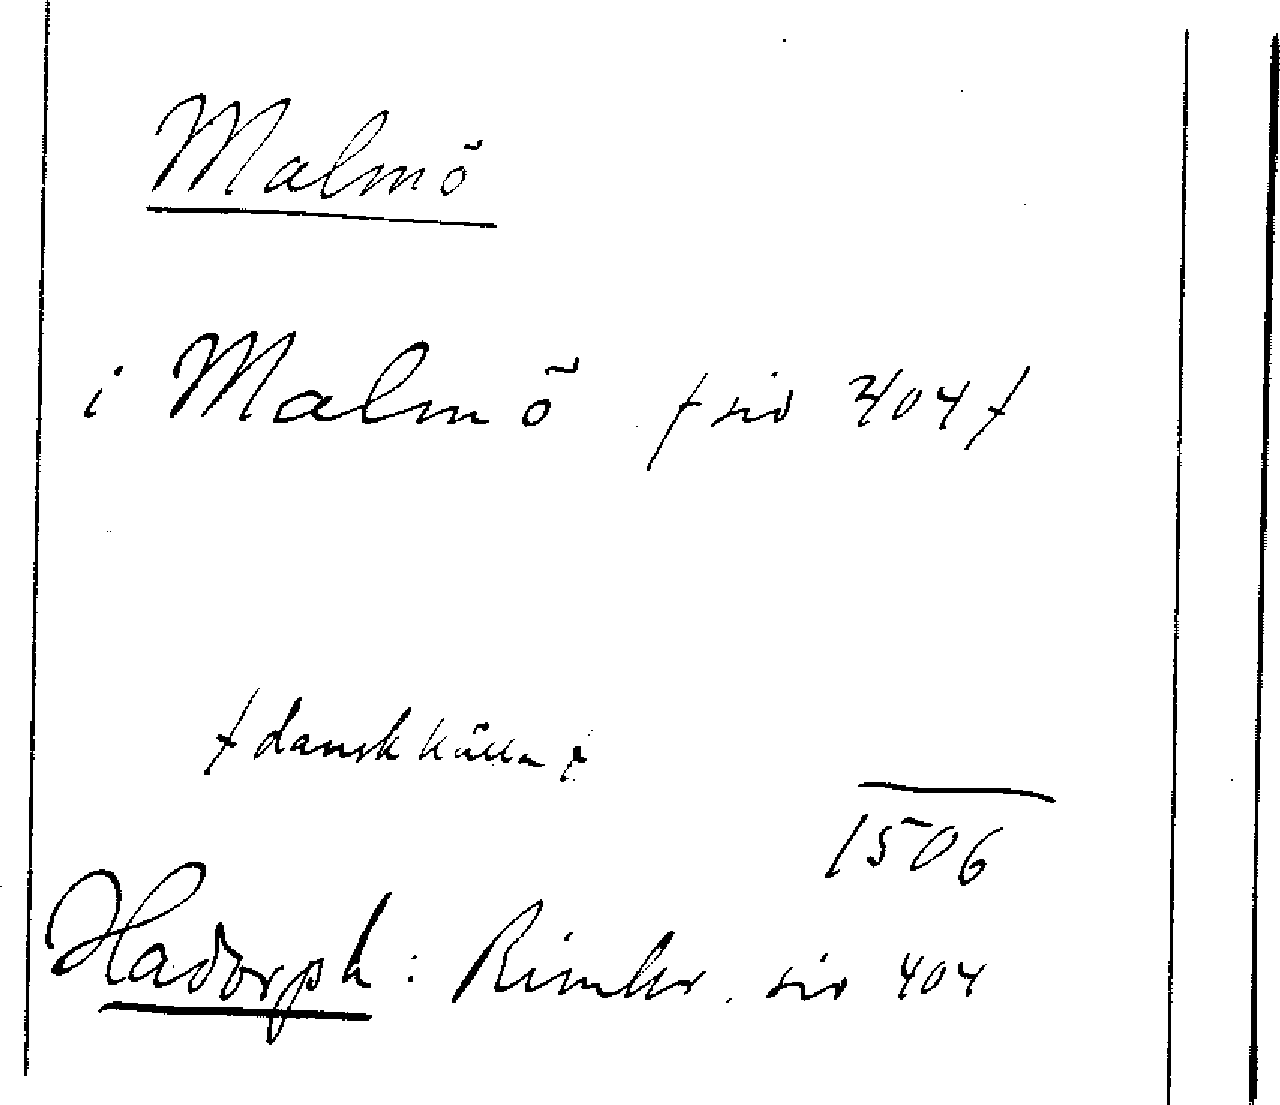 Malmö
i Malmö / sid 404 /
/ dansk källa /
1506
Hadorph: Rimkr. sid 404